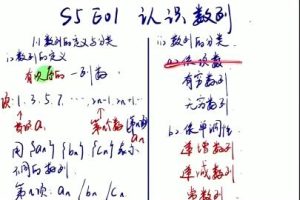 S5 E01 认识数列
1.1 数列的定义与分类
i> 数列的定义
有次序的一列数
1. 3. 5. 7. ..., 2n-1, 2n+1, ...
首项 a₁
用 {an} {bn} {cn} 表示
不同的数列
第n项: an / bn / cn
ii> 数列的分类
a> 依项数
有穷数列
无穷数列
b> 依单调性
递增数列
递减数列
常数列